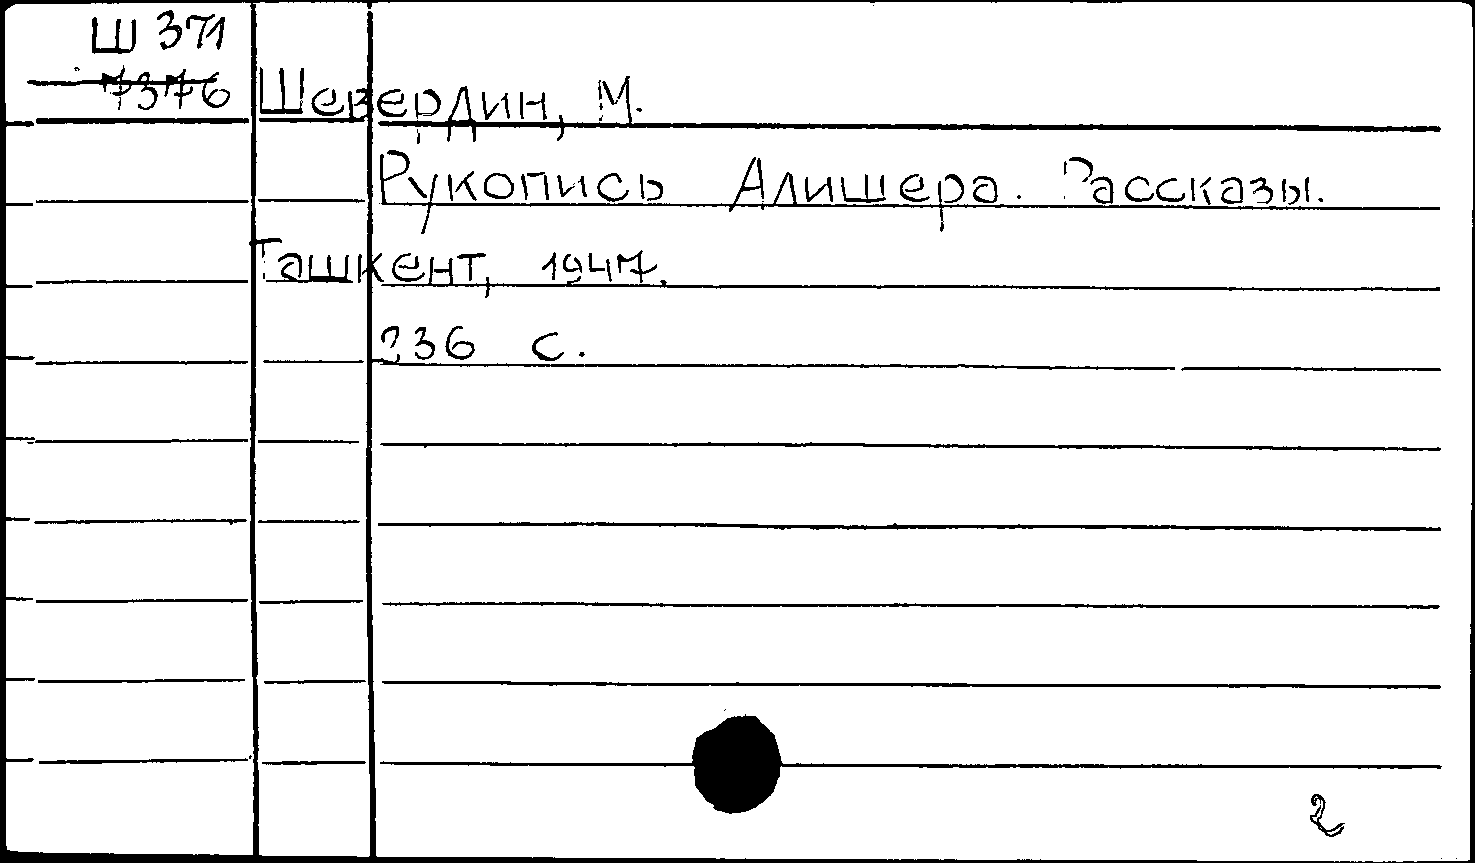 Ш 371
7376
Шевердин, М.
Рукопись Алишера. Рассказы.
Ташкент, 1947.
236 с.
2